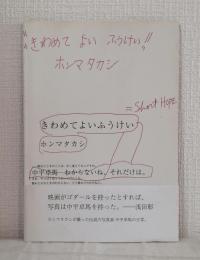 "きわめて よい ふうけい!!"
ホンマタカシ
= Short Hope
きわめてよいふうけい
ホンマタカシ
中平卓馬―わからないね。それだけは。
映画がゴダールを持ったとすれば、
写真は中平卓馬を持った。――浅田彰
ホンマタカシが撮った伝説の写真家・中平卓馬の日常。